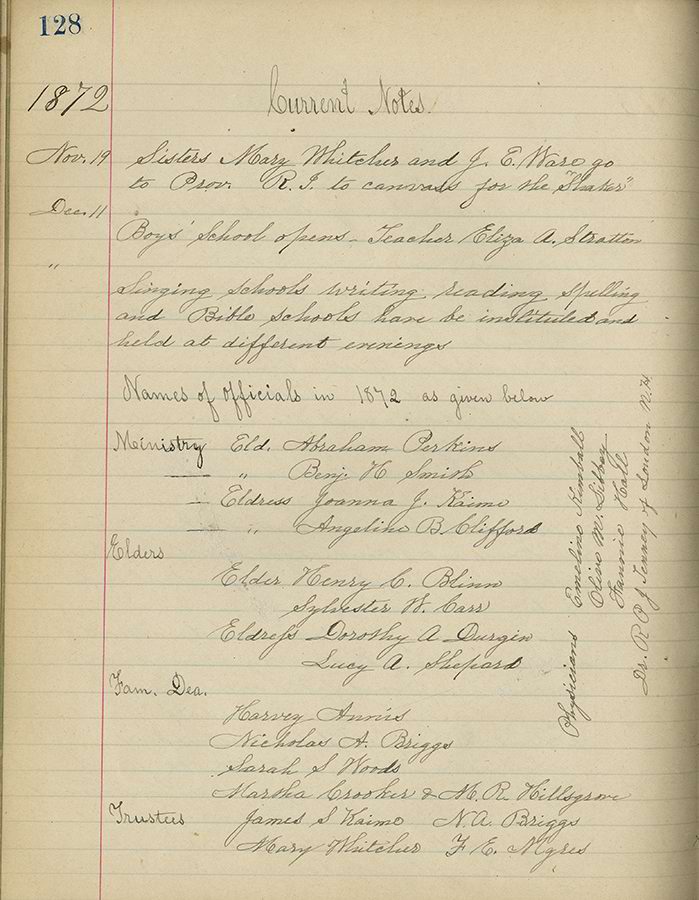 128
1872 Current Notes.
Nov. 19 Sisters Mary Whitcher and J. E. Ware go
to Prov. R. I. to canvass for the "Shaker"
Dec. 11
Boys' School opens - Teacher Eliza A. Stratton
"
Singing schools writing reading spelling
and Bible schools have be instituted and
held at different evenings
Names of officials in 1872 as given below
Ministry Eld. Abraham Perkins
" Benj. H Smith
Eldress Joanna J. Kaime
" Angeline B. Clifford
Elders
Elder Henry C. Blinn
Sylvester W. Carr
Eldress Dorothy A Durgin
Lucy A. Shepard
Fam. Dea.
Harvey Annis
Nicholas A. Briggs
Sarah S Woods
Martha Crooker & M. R. Hillsgrove
Trustees James S Kaime N. A. Briggs
Mary Whitcher F. E.
Physicians Emeline Kimball
Olive M. Sibley
Fannie Hall
Dr. R P J Tenney of Loudon N. H